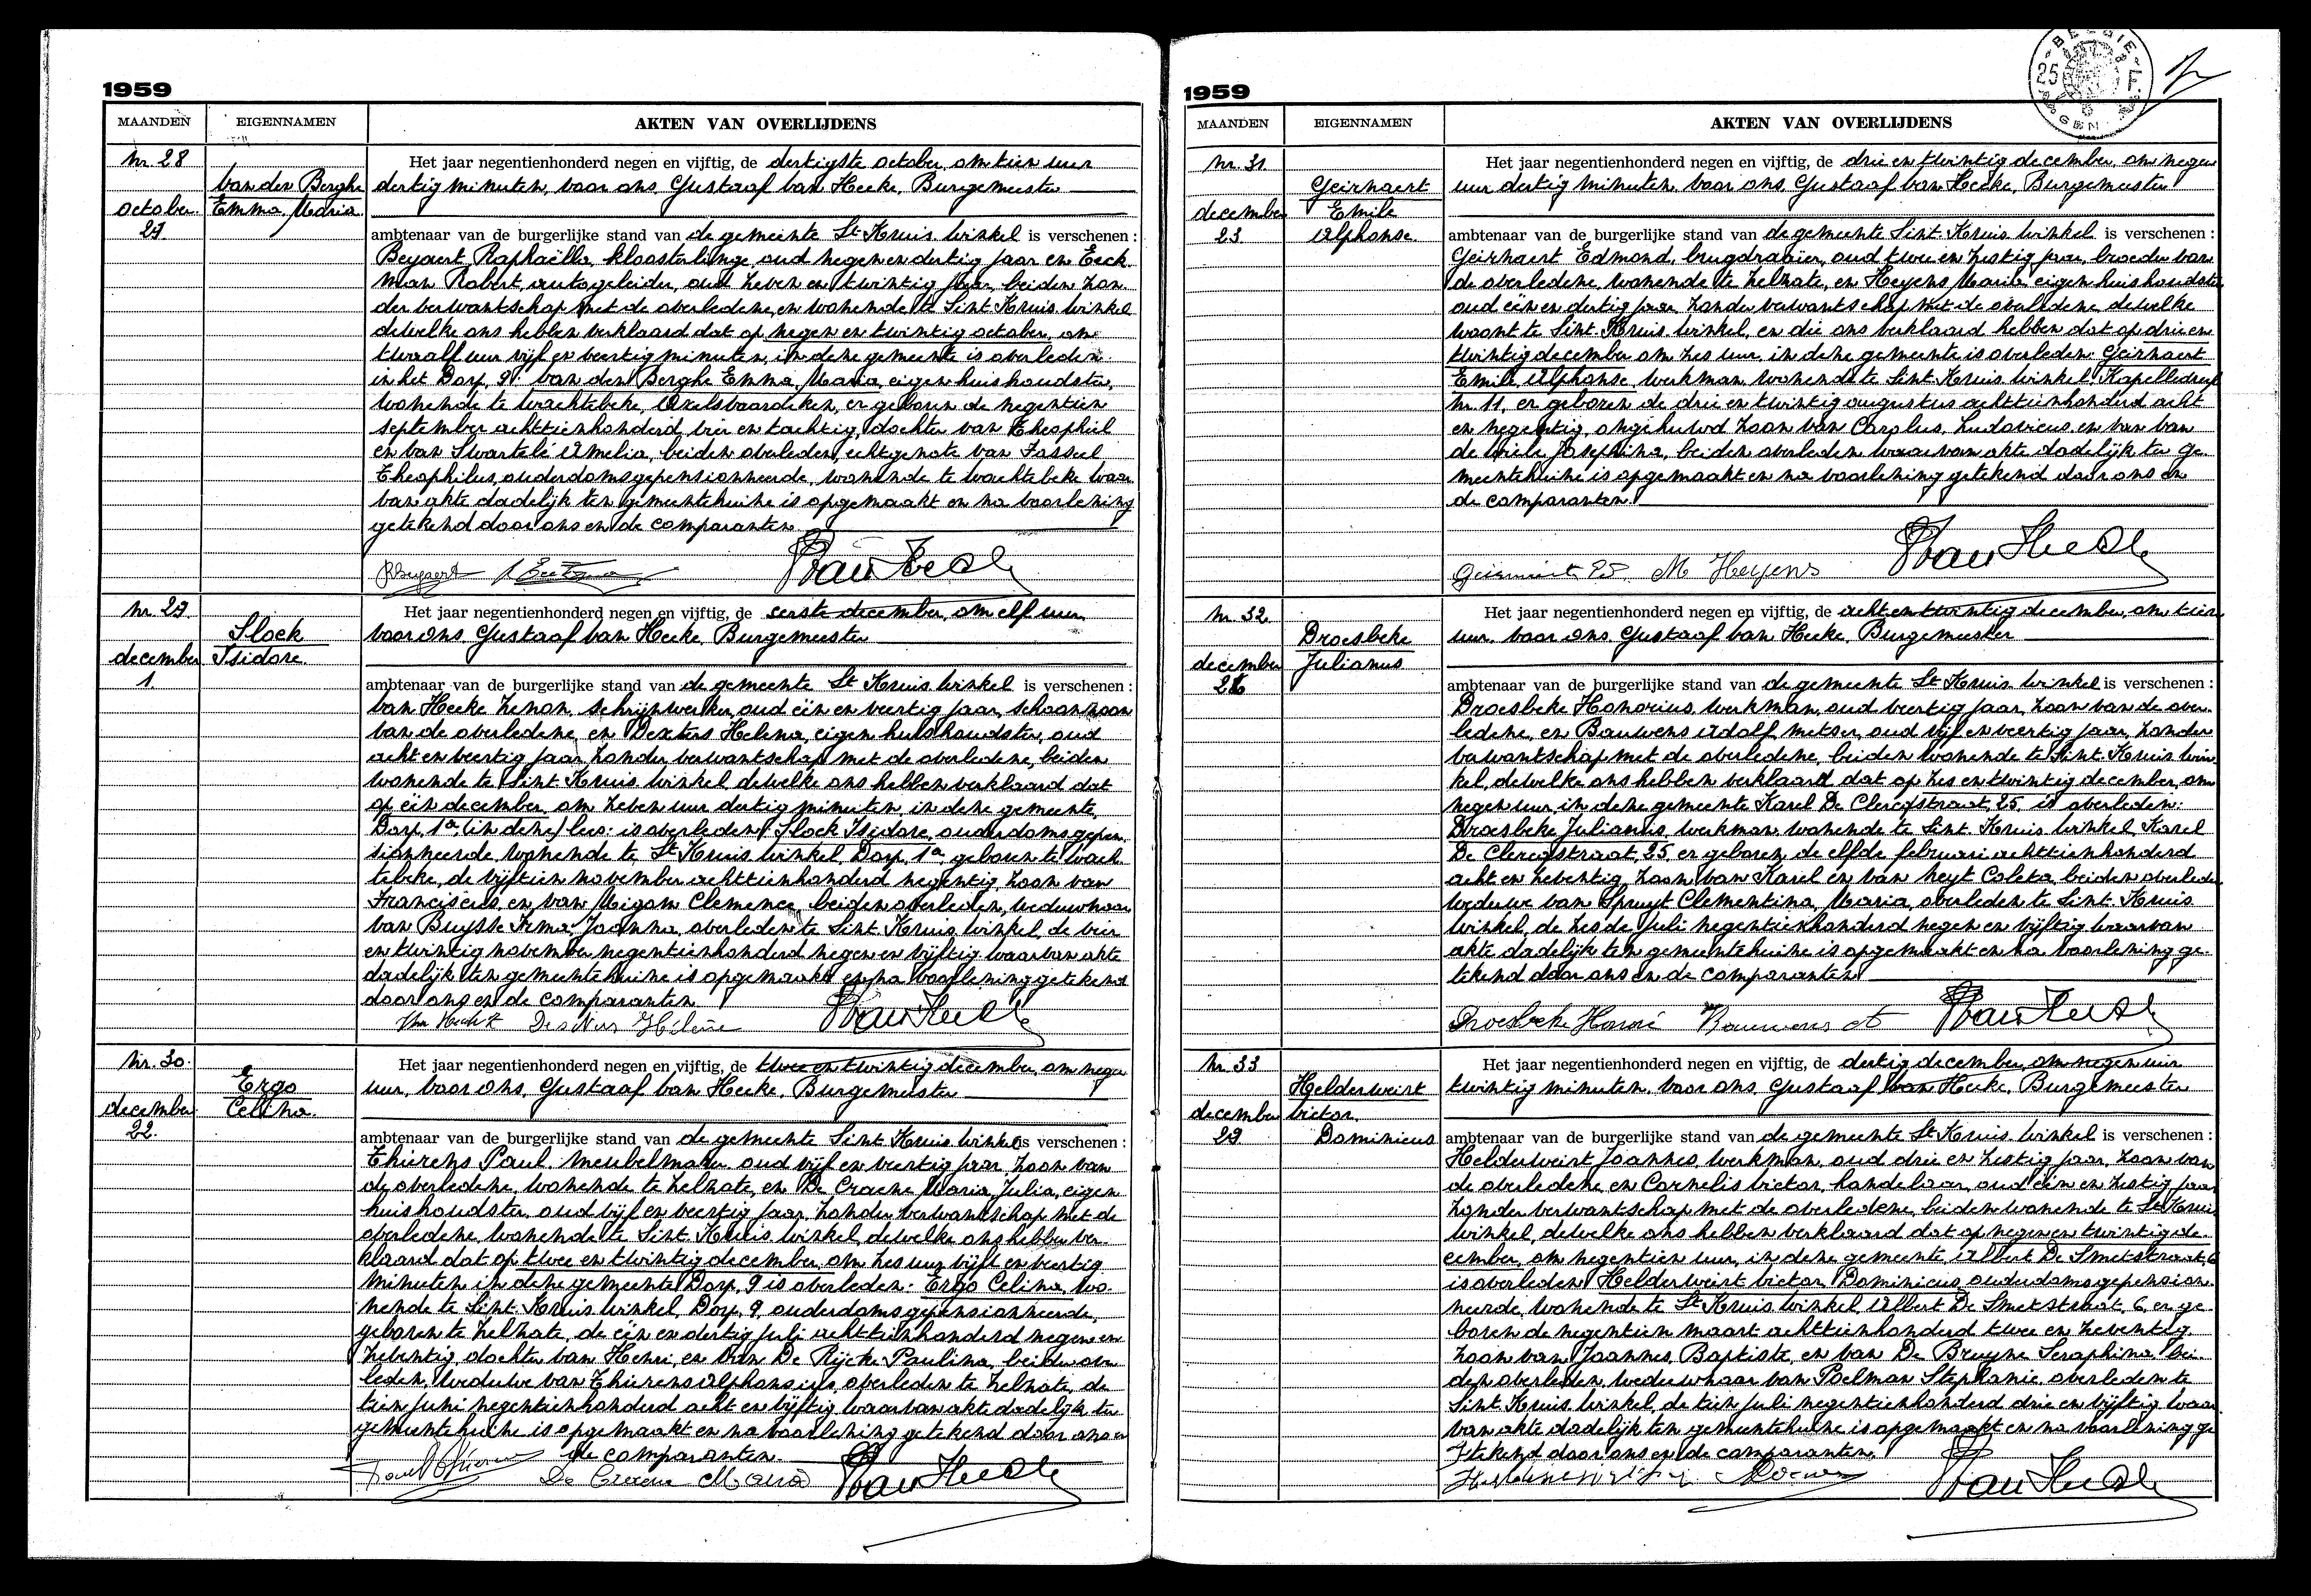 1959
MAANDEN
EIGENNAMEN
AKTEN VAN OVERLIJDENS
Nr. 28
Van den Berghe
Emma, Maria
october
29.
Het jaar negentienhonderd negen en vijftig, de dertigste october, om tien uur
dertig minuten, voor ons, Gustaaf van Hecke, Burgemeester
ambtenaar van de burgerlijke stand van de gemeente St. Kruis Winkel is verschenen :
Beyaert Raphaëlla, kloosterlinge oud negen en dertig jaar en Eeck
man Robert, autogeleider, oud zeven en twintig jaar, beiden zon-
der verwantschap met de overledene, en wonende te Sint Kruis Winkel
dewelke ons hebben verklaard dat op negen en twintig october, om
twaalf uur vijf en veertig minuten, in deze gemeente is overleden
in het Dorp, 9: Van den Berghe Emma, Maria, eigen huishoudster,
wonende te Wachtebeke, Axelsvaardeken, en geboren de negentien
september achttienhonderd vier en tachtig, dochter van Theophiel
en van Swartelé Amelia, beiden overleden, echtgenote van Fasseel
Theophilus, ouderdomsgepensionneerde, wonende te Wachtebeke waar
van akte dadelijk ten gemeentehuize is opgemaakt en na voorlezing
getekend door ons en de comparanten
Nr. 29.
Sloek
Isidore.
december
1.
Het jaar negentienhonderd negen en vijftig, de eerste december, om elf uur
voor ons, Gustaaf van Hecke, Burgemeester
ambtenaar van de burgerlijke stand van de gemeente St Kruis Winkel is verschenen :
Van Hecke Zenon, schrijnwerker, oud één en veertig jaar, schoonzoon
van de overledene, en Dexters Helena, eigen huishoudster, oud
acht en veertig jaar, zonder verwantschap met de overledene, beiden
wonende te Sint Kruis Winkel dewelke ons hebben verklaard dat
op één december, om zeven uur dertig minuten, in deze gemeente,
Dorp, 1a, (in deze) lees: is overleden: Sloek Isidore, ouderdomsgepen-
sionneerde, wonende te St Kruis Winkel, Dorp, 1a, geboren te Wach
tebeke, de vijftien november achttienhonderd negentig, zoon van
Franciscus, en van Migom Clemence, beiden overleden, weduwnaar
van Buysse Irma, Joanna, overleden te Sint Kruis Winkel, de vier
en twintig november negentienhonderd negen en vijftig waarvan akte
dadelijk ten gemeentehuize is opgemaakt en na voorlezing getekend
door ons en de comparanten
Nr. 30.
Ergo
Celina.
december
22.
Het jaar negentienhonderd negen en vijftig, de twee en twintig december, om negen
uur, voor ons, Gustaaf van Hecke, Burgemeester
ambtenaar van de burgerlijke stand van de gemeente Sint Kruis Winkel is verschenen :
Thierens Paul, meubelmaker, oud vijf en veertig jaar, zoon van
de overledene, wonende te Zelzate, en De Craene Maria, Julia, eigen
huishoudster, oud vijf en veertig jaar, zonder verwantschap met de
overledene, wonende te Sint Kruis Winkel, dewelke ons hebben ver-
klaard dat op twee en twintig december, om zes uur vijf en veertig
minuten in deze gemeente Dorp, 9 is overleden: Ergo Celina, wo-
nende te Sint Kruis Winkel, Dorp, 9, ouderdomsgepensionneerde,
geboren te Zelzate, de één en dertig juli achttienhonderd negen en
zeventig, dochter van Henri, en van De Rijcke Paulina, beiden over
leden, weduwe van Thierens Alphonsius, overleden te Zelzate, de
tien juni negentienhonderd acht en vijftig waarvan akte dadelijk ten
gemeentehuize is opgemaakt en na voorlezing getekend door ons en
de comparanten.
De Craene Maria
1959
MAANDEN
EIGENNAMEN
AKTEN VAN OVERLIJDENS
BELGIE
25
Nr. 31.
Geirnaert
Emile
Alphonse.
december
23
Het jaar negentienhonderd negen en vijftig, de drie en twintig december, om negen
uur dertig minuten, voor ons, Gustaaf van Hecke, Burgemeester
ambtenaar van de burgerlijke stand van de gemeente Sint Kruis Winkel is verschenen :
Geirnaert Edmond, brugdraaier, oud twee en zestig jaar, broeder van
de overledene, wonende te Zelzate, en Heyens Maria eigen huishoudster
oud één en dertig jaar, zonder verwantschap met de overledene dewelke
woont te Sint Kruis Winkel, en die ons verklaard hebben dat op drie en
twintig december om zes uur, in deze gemeente is overleden: Geirnaert
Emile, Alphonse, werkman, wonende te Sint Kruis Winkel, Kapelledreef
Nr. 11, en geboren de drie en twintig augustus achttienhonderd acht
en negentig, ongehuwd zoon van Carolus, Ludovicus, en van Van
de Wiele Josephina, beiden overleden waarvan akte dadelijk ten ge-
meentehuize is opgemaakt en na voorlezing getekend door ons en
de comparanten.
M Heyens
Nr. 32.
Droesbeke
Julianus
december
26
Het jaar negentienhonderd negen en vijftig, de acht en twintig december, om tien
uur, voor ons, Gustaaf van Hecke, Burgemeester
ambtenaar van de burgerlijke stand van de gemeente St Kruis Winkel is verschenen :
Droesbeke Honorius, werkman, oud veertig jaar, zoon van de over-
ledene, en Bauwens Adolf, metser, oud vijf en veertig jaar, zonder
verwantschap met de overledene, beiden wonende te Sint Kruis Win
kel, dewelke ons hebben verklaard dat op zes en twintig december, om
negen uur, in deze gemeente Karel De Clercqstraat, 25, is overleden:
Droesbeke Julianus, werkman, wonende te Sint Kruis Winkel, Karel
De Clercqstraat, 25, en geboren de elfde februari achttienhonderd
acht en zeventig, zoon van Karel en van Neyt Coleta, beiden overleden
weduwe van Spruyt Clementina, Maria, overleden te Sint Kruis
Winkel, de zesde juli negentienhonderd negen en vijftig waarvan
akte dadelijk ten gemeentehuize is opgemaakt en na voorlezing ge-
tekend door ons en de comparanten
Nr. 33
Helderweirt
Victor.
Dominicus
december
29
Het jaar negentienhonderd negen en vijftig, de dertig december, om negen uur
twintig minuten, voor ons, Gustaaf van Hecke, Burgemeester
ambtenaar van de burgerlijke stand van de gemeente St Kruis Winkel is verschenen :
Helderweirt Joannes, werkman, oud drie en zestig jaar, zoon van
de overledene en Cornelis Victor, handelaar, oud één en zestig jaar
zonder verwantschap met de overledene, beiden wonende te St Kruis
Winkel, dewelke ons hebben verklaard dat op negen en twintig de-
cember, om negentien uur, in deze gemeente, Albert De Smetstraat, 6
is overleden Helderweirt Victor, Dominicus, ouderdomsgepension-
neerde, wonende te St Kruis Winkel, Albert De Smetstraat, 6, en ge-
boren de negentien maart achttienhonderd twee en zeventig,
zoon van Joannes, Baptiste, en van De Bruyne Seraphina, bei-
den overleden, weduwnaar van Poelman Stephanie, overleden te
Sint Kruis Winkel, de tien juli negentienhonderd drie en vijftig waar
van akte dadelijk ten gemeentehuize is opgemaakt en na voorlezing ge
tekend door ons en de comparanten.